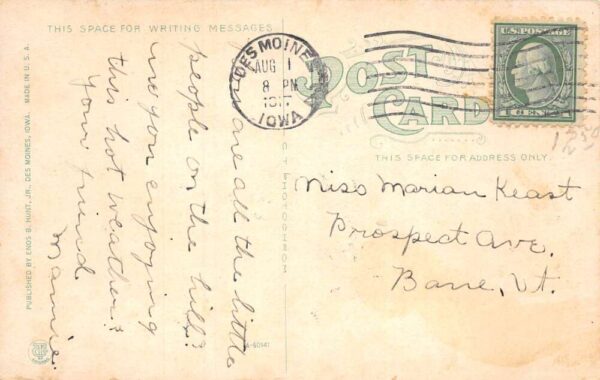 THIS SPACE FOR WRITING MESSAGES
DES MOINES
AUG 1
8 PM
IOWA
U.S. POSTAGE
POST
CARD
THIS SPACE FOR ADDRESS ONLY.
are all the little
people on the hill?
Are you enjoying
this hot weather?
Your friend
Mamie.
Miss Marian Keast
Prospect Ave.
Barre, Vt.
PUBLISHED BY ENOS B. HUNT, JR., DES MOINES, IOWA.
MADE IN U.S.A.